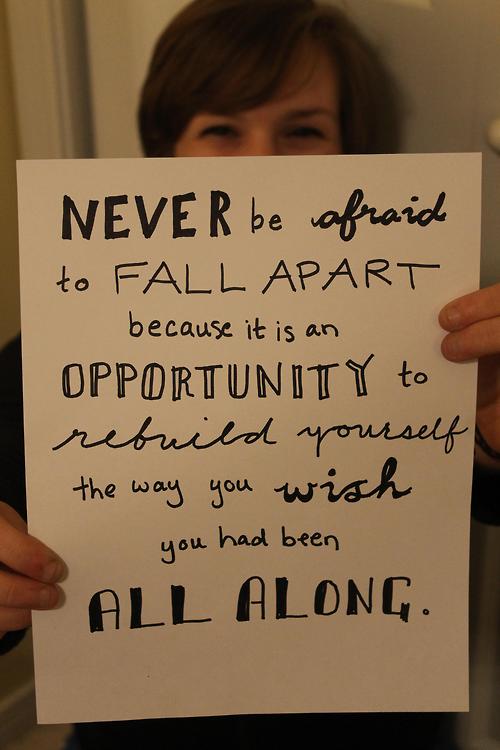 NEVER be afraid
to FALL APART
because it is an
OPPORTUNITY to
rebuild yourself
the way you wish
you had been
ALL ALONG.